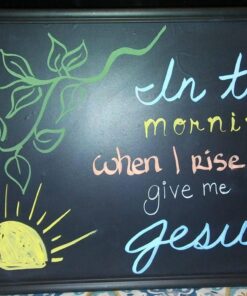 In t
morni
when I rise
give me
Jesu